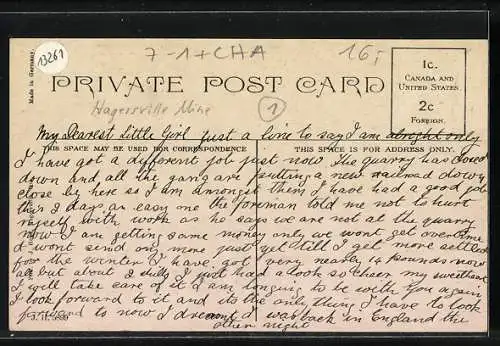 13261
7-1+CHA
16,-
Made in Germany.
PRIVATE POST CARD
1c.
CANADA AND
UNITED STATES
2c
FOREIGN.
Hagersville Mine
1
My Dearest Little Girl just a line to say I am alright only
THIS SPACE MAY BE USED FOR CORRESPONDENCE
THIS SPACE IS FOR ADDRESS ONLY.
I have got a different job just now The quarry has closed
down and all the gang are putting a new railroad down
close by here so I am amongst them I have had a good job
this days an easy one the foreman told me not to hurt
myself with work as he says we are not at the quarry
now I am getting same money only we wont get overtime
I wont send any more just yet till I get more settled
for the winter I have got very nearly 14 pounds now
all but about I just had a look so cheer my sweetheart
I will take care of it I am longing to be with you again
I look forward to it and its the only thing I have to look
forward to now I dreamt I was back in England the
other night